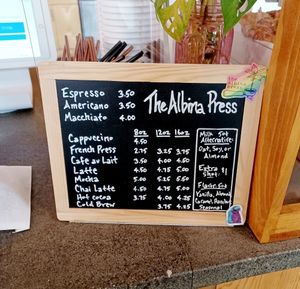 The Albina Press
Espresso 3.50
Americano 3.50
Macchiato 4.00
8oz 12oz 16oz
Cappuccino 4.50
French Press 2.75 3.25 3.75
Cafe au lait 3.50 4.00 4.50
Latte 4.50 4.75 5.00
Mocha 5.00 5.25 5.50
Chai latte 4.50 4.75 5.00
Hot cocoa 3.75 4.00 4.25
Cold Brew 3.75 4.25
Milk
Alternative:
Oat, Soy, or
Almond
Extra
Shot: $1
Vanilla, Almond,
Caramel, Hazelnut,
Seasonal